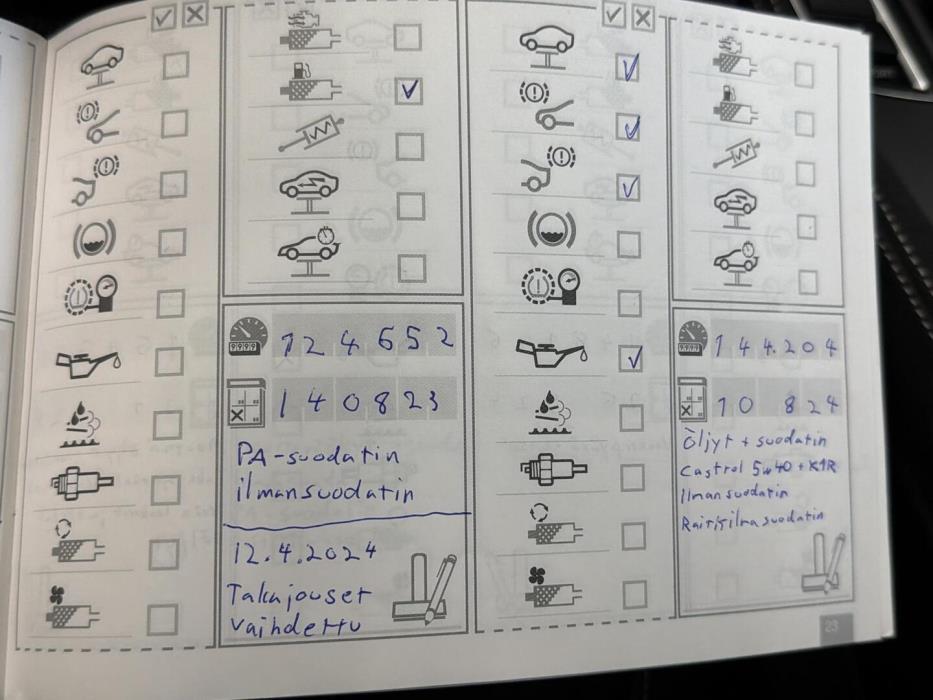 124652
140823
PA-suodatin
ilmansuodatin
12.4.2024
Takajouset
vaihdettu
144.204
10 824
Öljyt + suodatin
Castrol 5w40 + K1R
Ilmansuodatin
suodatin
23